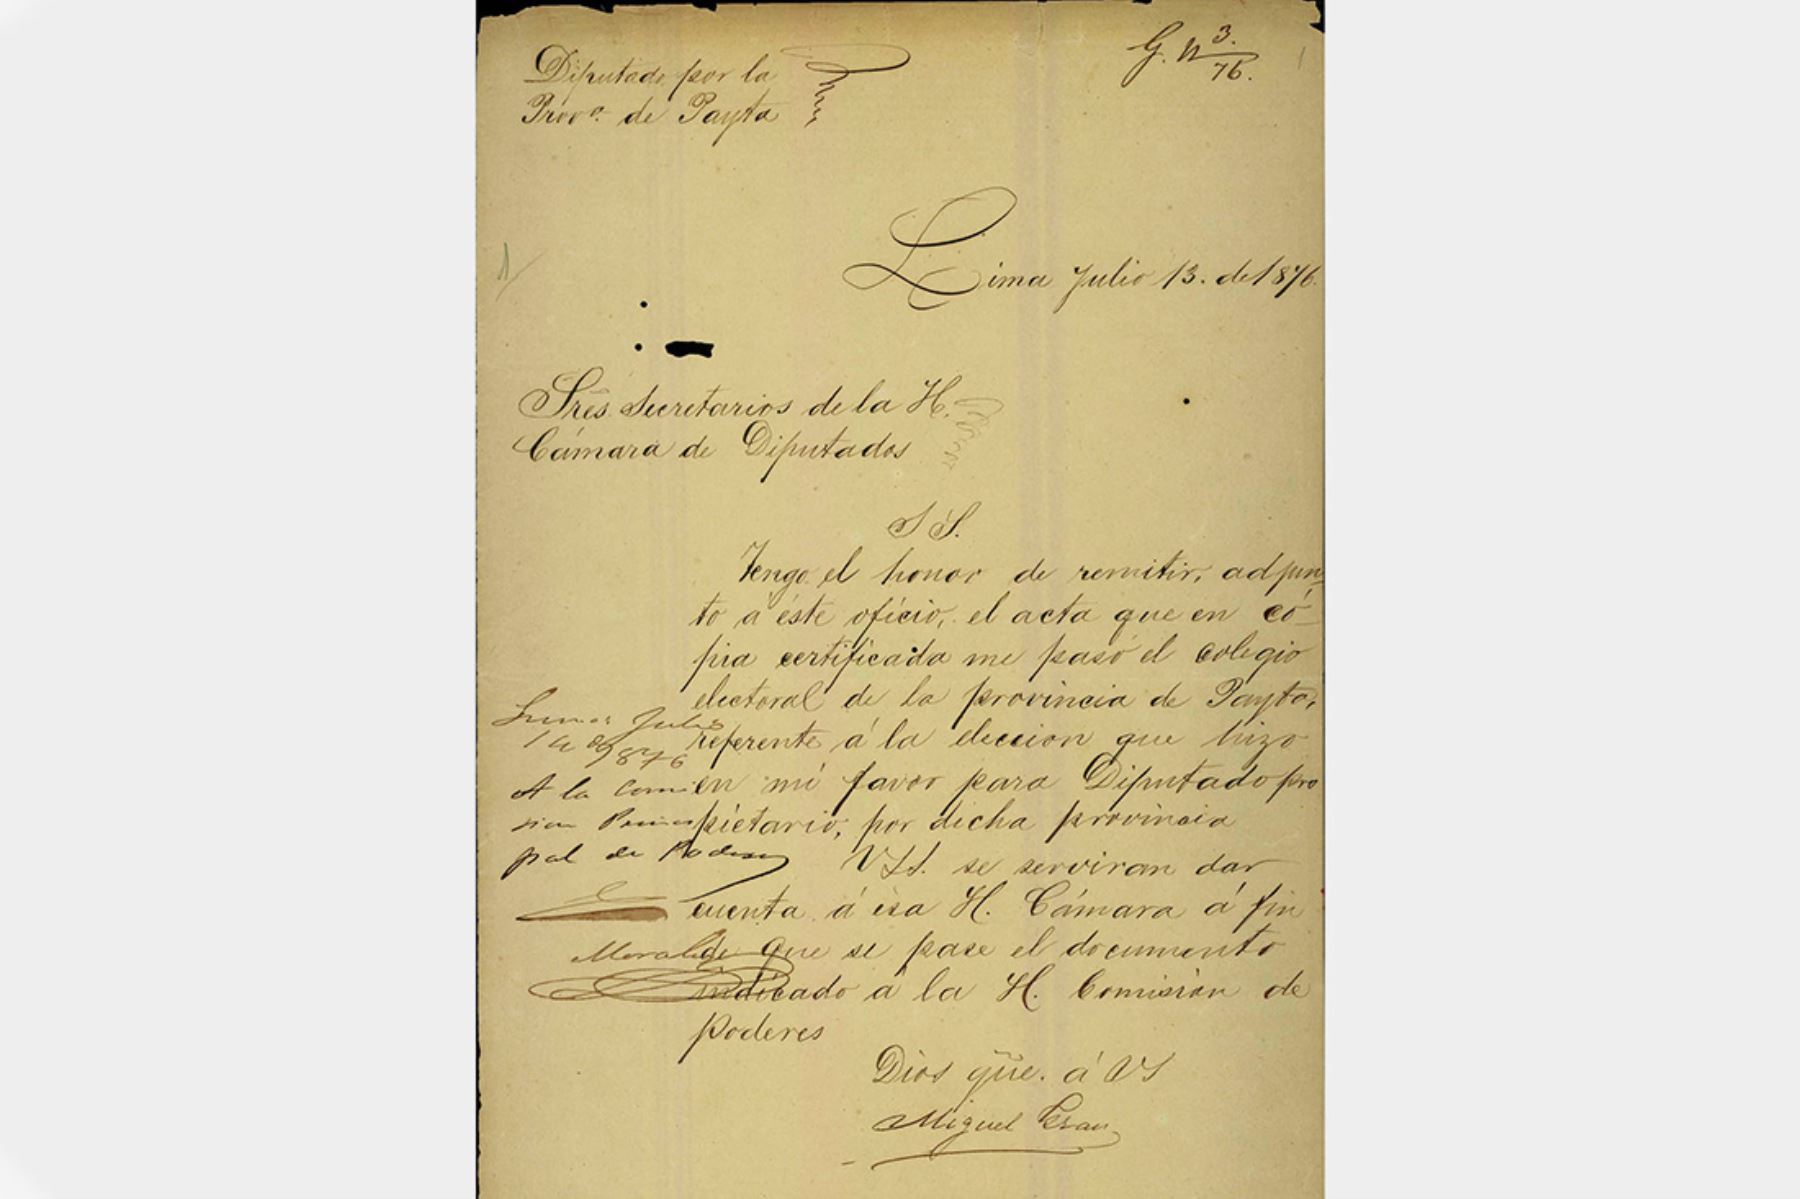 G. N 3.
76.
Diputado por la
Prov.ª de Payta
Lima Julio 13. de 1876.
Sres. Secretarios de la H.
Cámara de Diputados
S S.
Tengo el honor de remitir, adjun
to á éste oficio, el acta que en có-
pia certificada me pasó el colegio
electoral de la provincia de Payta,
referente á la eleccion que hizo
en mi favor para Diputado pro
pietario, por dicha provincia
VSS. se serviran dar
cuenta á ésa H. Cámara á fin
de que se pase el documento
indicado á la H. Comisión de
poderes
Dios gũe. á VS
Miguel Grau
Lima Julio
14 1876
A la Comi
sion Princi
pal de Poderes